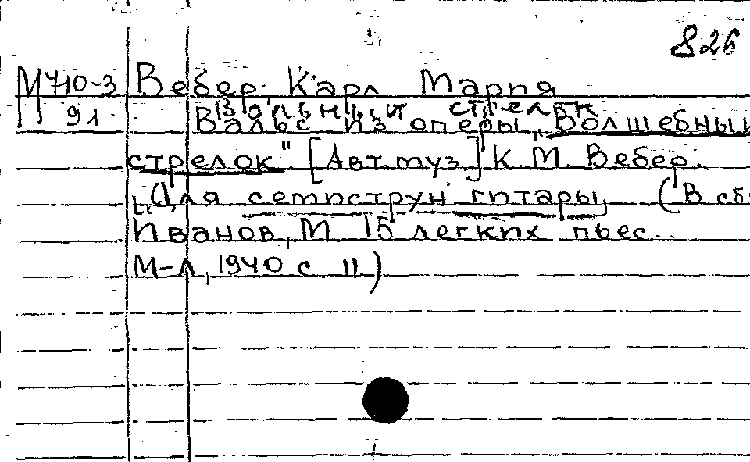 826
М710-3 Вебер Карл Мария
91
Вольный стрелок
Вальс из оперы „Волшебный
стрелок" [Авт. муз.] К. М. Вебер.
Для семиструн гитары (В сб
Иванов, М 15 легких пьес.
М-Л, 1940 с 11)